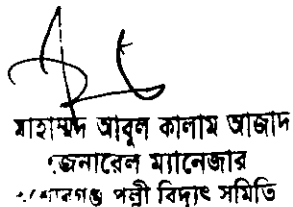 মোহাম্মদ আবুল কালাম আজাদ
জেনারেল ম্যানেজার
পল্লী বিদ্যুৎ সমিতি